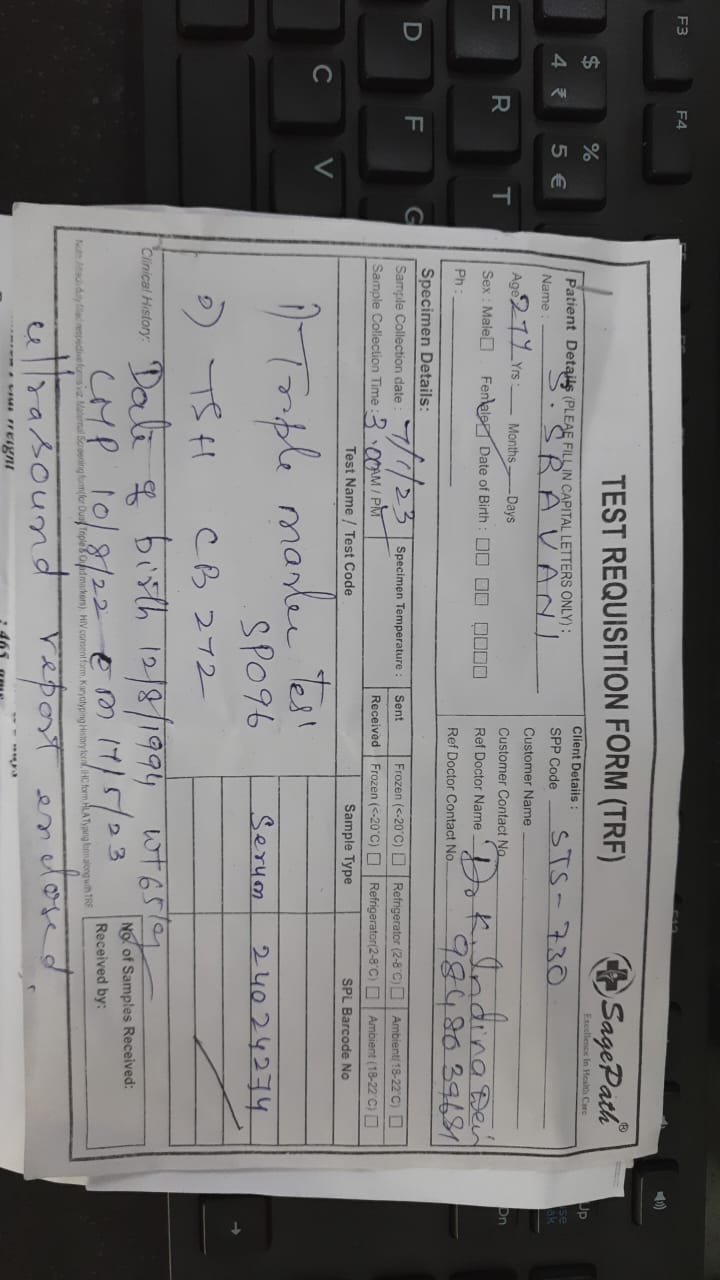 TEST REQUISITION FORM (TRF)
SagePath®
Excellence In Health Care
Patient Details (PLEAE FILL IN CAPITAL LETTERS ONLY) :
Name : S. SRAVANI
Age 27Y Yrs : Months Days
Sex : Male Female Date of Birth :
Ph :
Client Details :
SPP Code STS-730
Customer Name
Customer Contact No
Ref Doctor Name Dr K.
Ref Doctor Contact No
Specimen Details:
Sample Collection date : 7/1/23 Specimen Temperature : Sent Frozen (<-20°C) Refrigerator (2-8°C) Ambient(18-22°C)
Sample Collection Time : 3.00 AM / PM Received Frozen (<-20°C) Refrigerator(2-8°C) Ambient (18-22°C)
Test Name / Test Code Sample Type SPL Barcode No
1) Triple marker Tes
SP096 Serum 24024274
2) TSH CB272
Clinical History: Date of birth 12/8/1994 wt 65kg
LMP 10/8/22 17/5/23
No of Samples Received:
Received by:
ultrasound report enclosed.
F3
F4
$
4 ₹
%
5 €
E
R
T
D
F
G
C
V